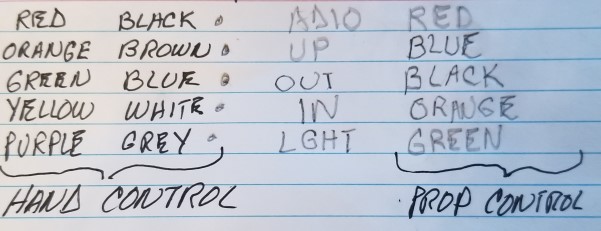 RED BLACK ADIO RED
ORANGE BROWN UP BLUE
GREEN BLUE OUT BLACK
YELLOW WHITE IN ORANGE
PURPLE GREY LGHT GREEN
HAND CONTROL PROP CONTROL